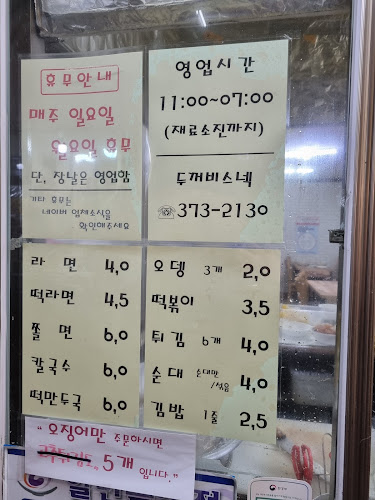 휴무안내
매주 일요일
월요일 휴무
단, 장날은 영업함
기타 휴무는
네이버 업체소식을
확인해주세요
영업시간
11:00~07:00
(재료소진까지)
두꺼비스네
☏373-2130
라면 4,0
떡라면 4,5
쫄면 6,0
칼국수 6,0
떡만두국 6,0
오뎅 3개 2,0
떡볶이 3,5
튀김 6개 4,0
순대 순대만/섞음 4,0
김밥 1줄 2,5
"오징어만 주문하시면
5개 입니다."